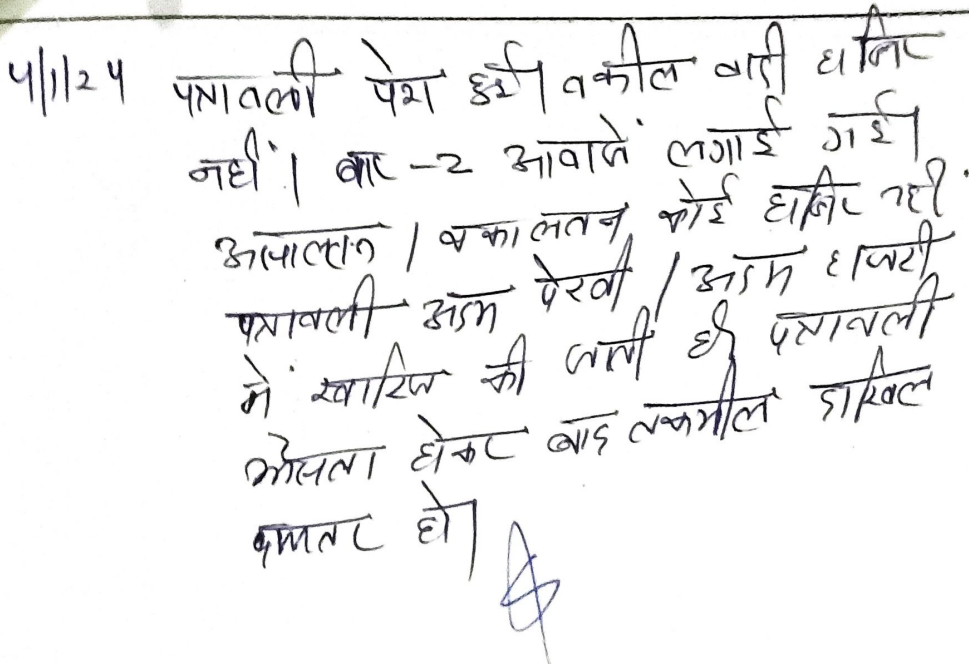 4/1/24 पत्रावली पेश हुई। वकील वादी हाजिर
नहीं। बार -2 आवाजें लगाई गई।
असालतन / वकालतन कोई हाजिर नहीं
पत्रावली अदम पेरवी / अदम हाजरी
में खारिज की जाती है। पत्रावली
फैसला होकर बाद तकमील दाखिल
दफ्तर हो।